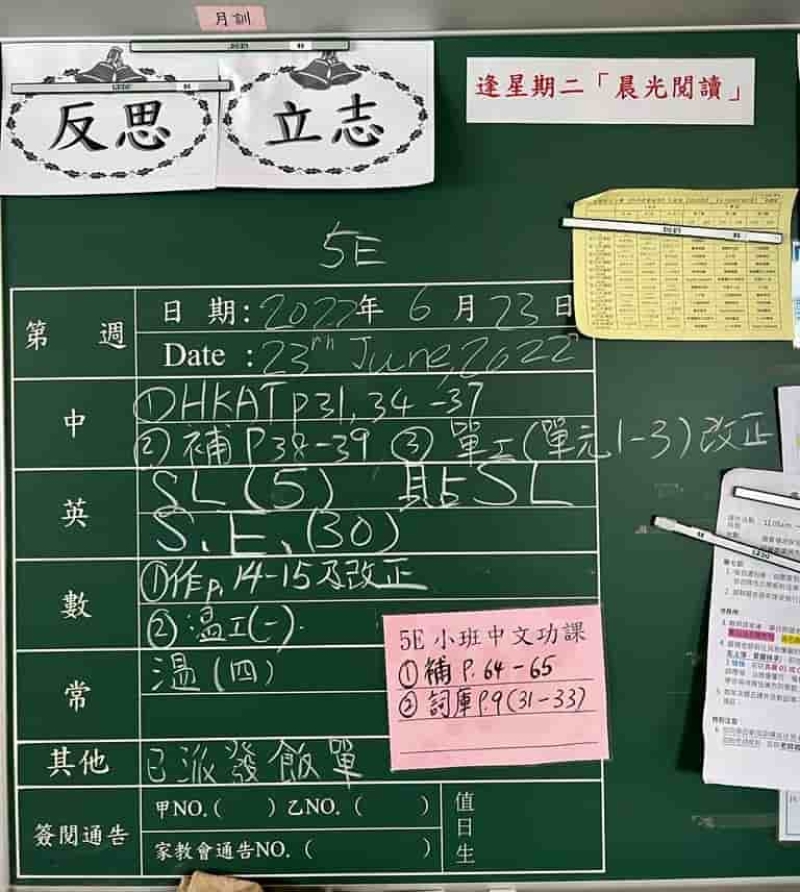 月訓
反思
立志
逢星期二「晨光閱讀」
5E
第 週
日 期：2022年 6 月 23 日
Date ：23rh June, 2022
中
①HKAT p31, 34-37
②補 P38-39 ③ 單工(單元1-3)改正
英
SL (5) 貼 SL
S. E. (30)
數
①作p. 14-15及改正
②溫工(一).
常
溫(四)
5E 小班中文功課
①補 P. 64-65
②詞庫 P.9 (31-33)
其他
已派發飯單
簽閱通告
甲NO. ( ) 乙NO. ( )
家教會通告NO. ( )
值日生